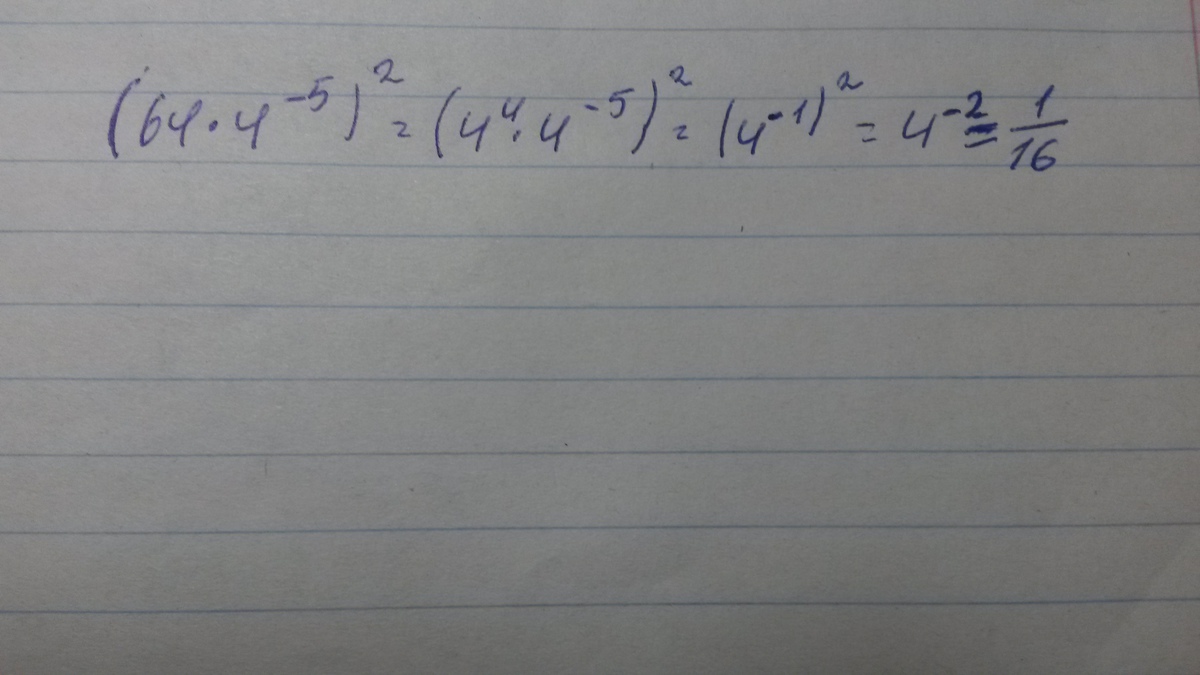 (64·4⁻⁵)² = (4⁴·4⁻⁵)² = (4⁻¹)² = 4⁻² = 1/16